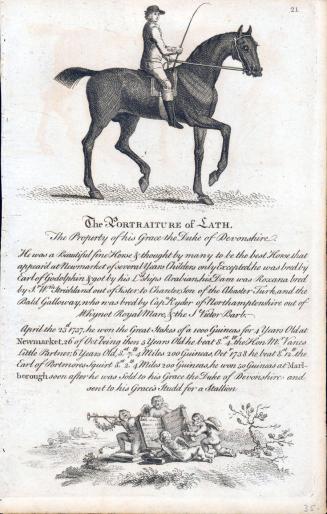 21
The PORTRAITURE of LATH.
The Property of his Grace the Duke of Devonshire
He was a Beautiful fine Horse & thought by many to be the best Horse that
appear'd at Newmarket of several Years Childers only Excepted, he was bred by
Earl of Godolphin & got by his L.ds ships Arabian, his Dam was Roxana bred
by S.r W.m Strickland out of Sister to Chanter, Son of the Akaster Turk, and the
Bald Galloway, who was bred by Cap.t Ryder of Northamptonshire out of
Whynot Royal Mare, & the S.t Victor Barb.
April the 25 1737, he won the Great Stakes of a 1000 Guineas for 4 Years Old at
Newmarket, 26 of Oct. being then 5 Years Old he beat 8.st 4.lb the Hon. M.r Vanes
Little Partner; 6 Years Old, 8.st 7.lb 4 Miles 200 Guineas, Oct. 1738 he beat 8.st 12.lb the
Earl of Portmores Squirt 8.st 2.lb 4 Miles 200 Guineas, he won 50 Guineas at Marl-
borough soon after he was Sold to his Grace the Duke of Devonshire and
sent to his Grace's Studd for a Stallion
35